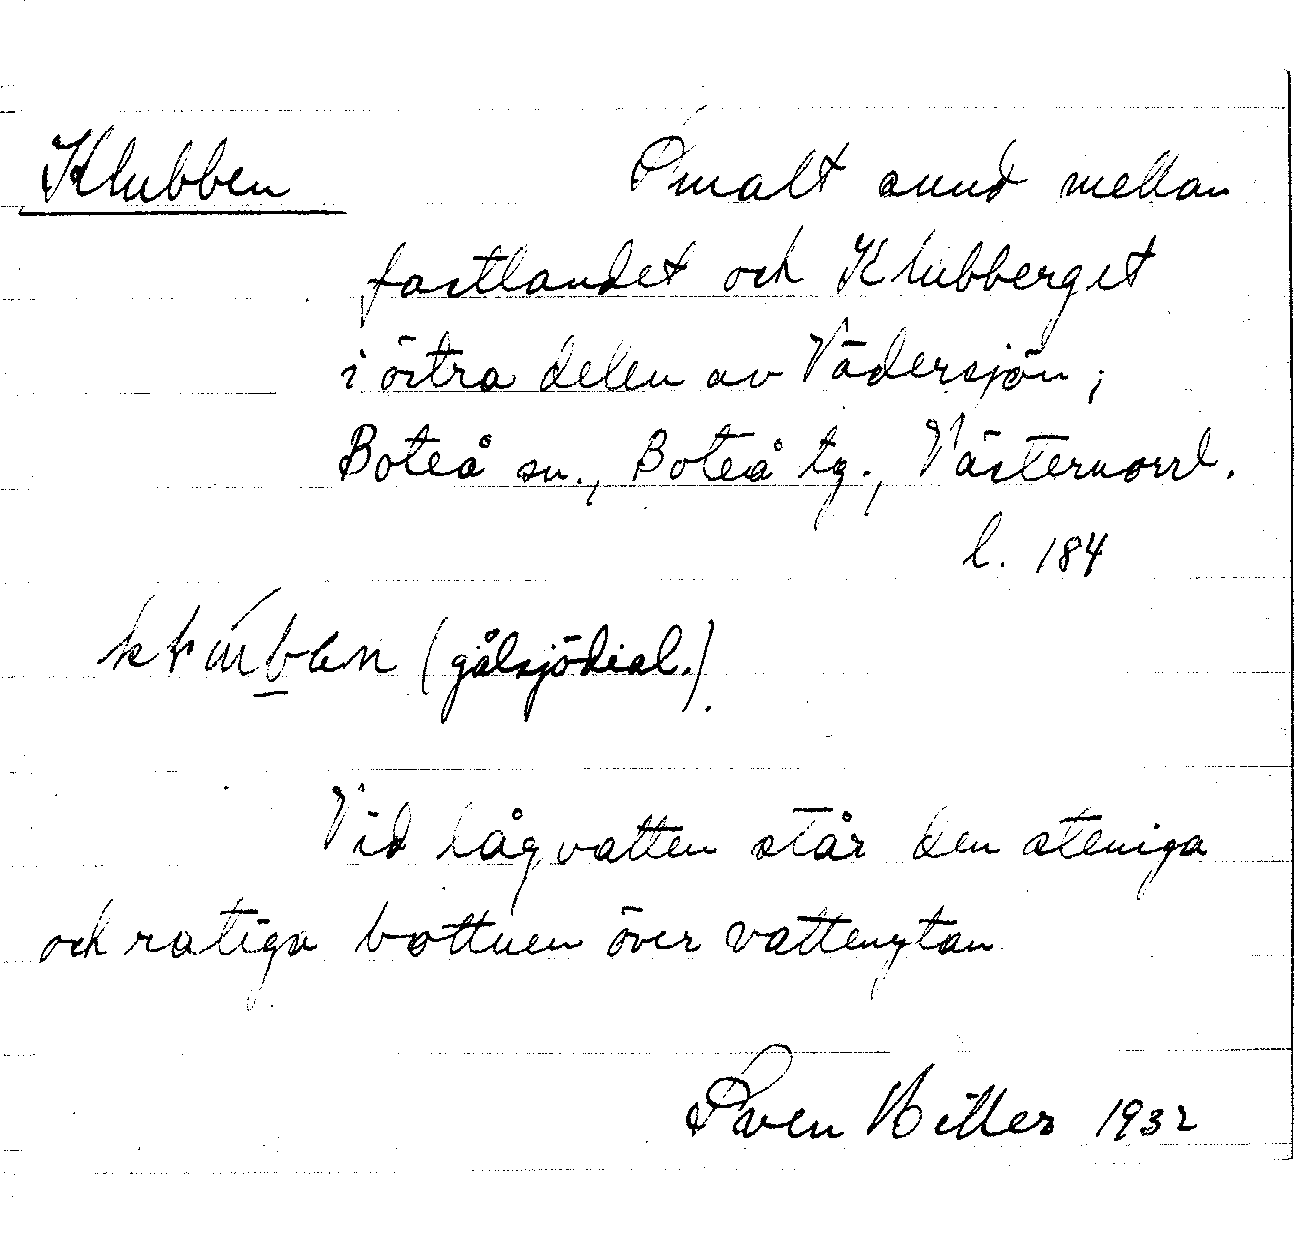 Klubben Smalt sund mellan
fastlandet och Klubberget
i östra delen av Vädersjön;
Boteå sn., Boteå tg., Västernorrl.
l. 184
(gålsjödial.).
Vid lågvatten står den steniga
och ratiga bottnen över vattenytan
Sven Hitter 1932